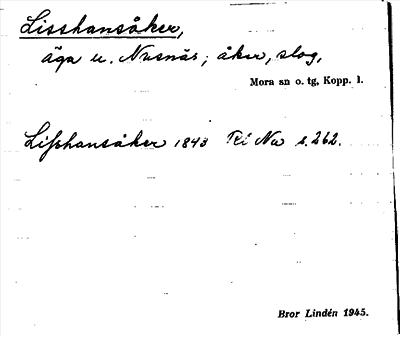 Lisshansåker,
äga u. Nusnäs; åker, slog,
Mora sn o. tg, Kopp. l.
Lißhansåker 1843 Rl Nu s. 262.
Bror Lindén 1945.